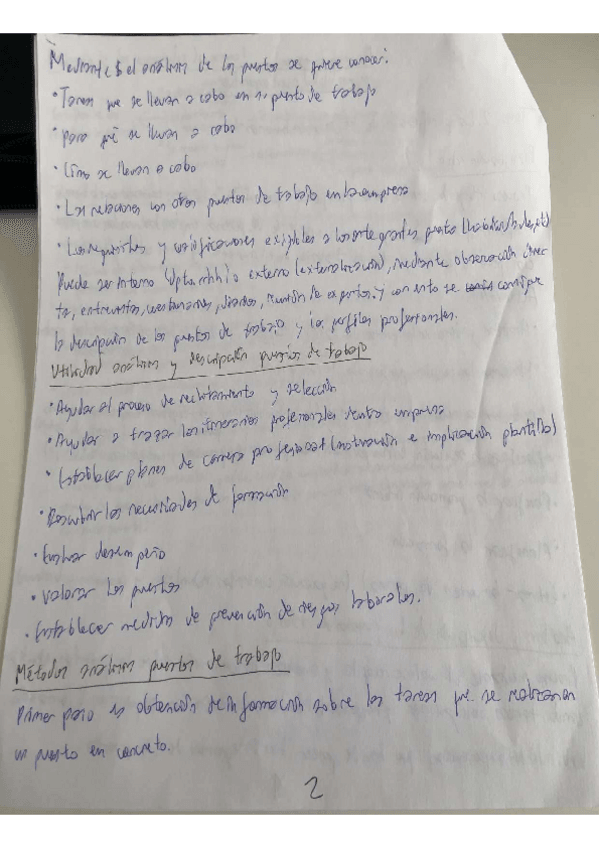 Mediante el análisis de los puestos se quiere conocer:
• Tareas que se llevan a cabo en un puesto de trabajo
• para qué se llevan a cabo
• Cómo se llevan a cabo
• Las relaciones con otros puestos de trabajo en la empresa
• Los requisitos y cualificaciones exigibles a los integrantes puesto
Puede ser interno (Dpto rrhh) o externo (externalización), mediante observación
entrevistas, cuestionarios, diarios, reunión de expertos. y con esto se consigue
la descripción de los puestos de trabajo y los perfiles profesionales.
Utilidad análisis y descripción puestos de trabajo
• Ayudar al proceso de reclutamiento y selección
• Ayudar a trazar los itinerarios profesionales dentro empresa
• Establecer planes de carrera profesional (motivación e implicación plantilla)
• Descubrir las necesidades de formación
• Evaluar desempeño
• Valorar los puestos
• Establecer medidas de prevención de riesgos laborales.
Métodos análisis puestos de trabajo
Primer paso es obtención de información sobre las tareas que se realizan en
un puesto en concreto.
2